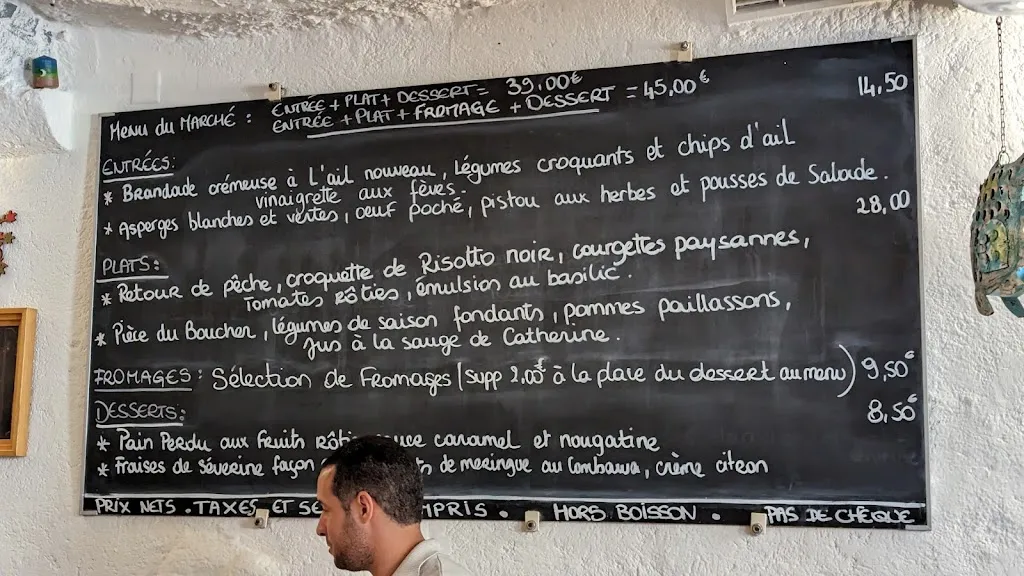 Menu du MARCHÉ : ENTRÉE + PLAT + DESSERT = 39.00€
ENTRÉE + PLAT + FROMAGE + DESSERT = 45,00€
ENTRÉES : 14,50
* Brandade crémeuse à L'ail nouveau, Légumes croquants et chips d'ail
vinaigrette aux fèves.
* Asperges blanches et vertes, oeuf poché, pistou aux herbes et pousses de Salade.
PLATS : 28,00
* Retour de pêche, croquette de Risotto noir, courgettes paysannes,
Tomates rôties, émulsion au basilic.
* Pièce du Boucher, légumes de saison fondants, pommes paillassons,
Jus à la sauge de Catherine.
FROMAGES : Sélection de Fromages (supp 2,00€ à la place du dessert au menu) 9,50€
DESSERTS : 8,50€
* Pain Perdu aux Fruits caramel et nougatine
* Fraises de Séverine façon de meringue au Combawa, crème citron
PRIX NETS . TAXES ET . HORS BOISSON . PAS DE CHÈQUE